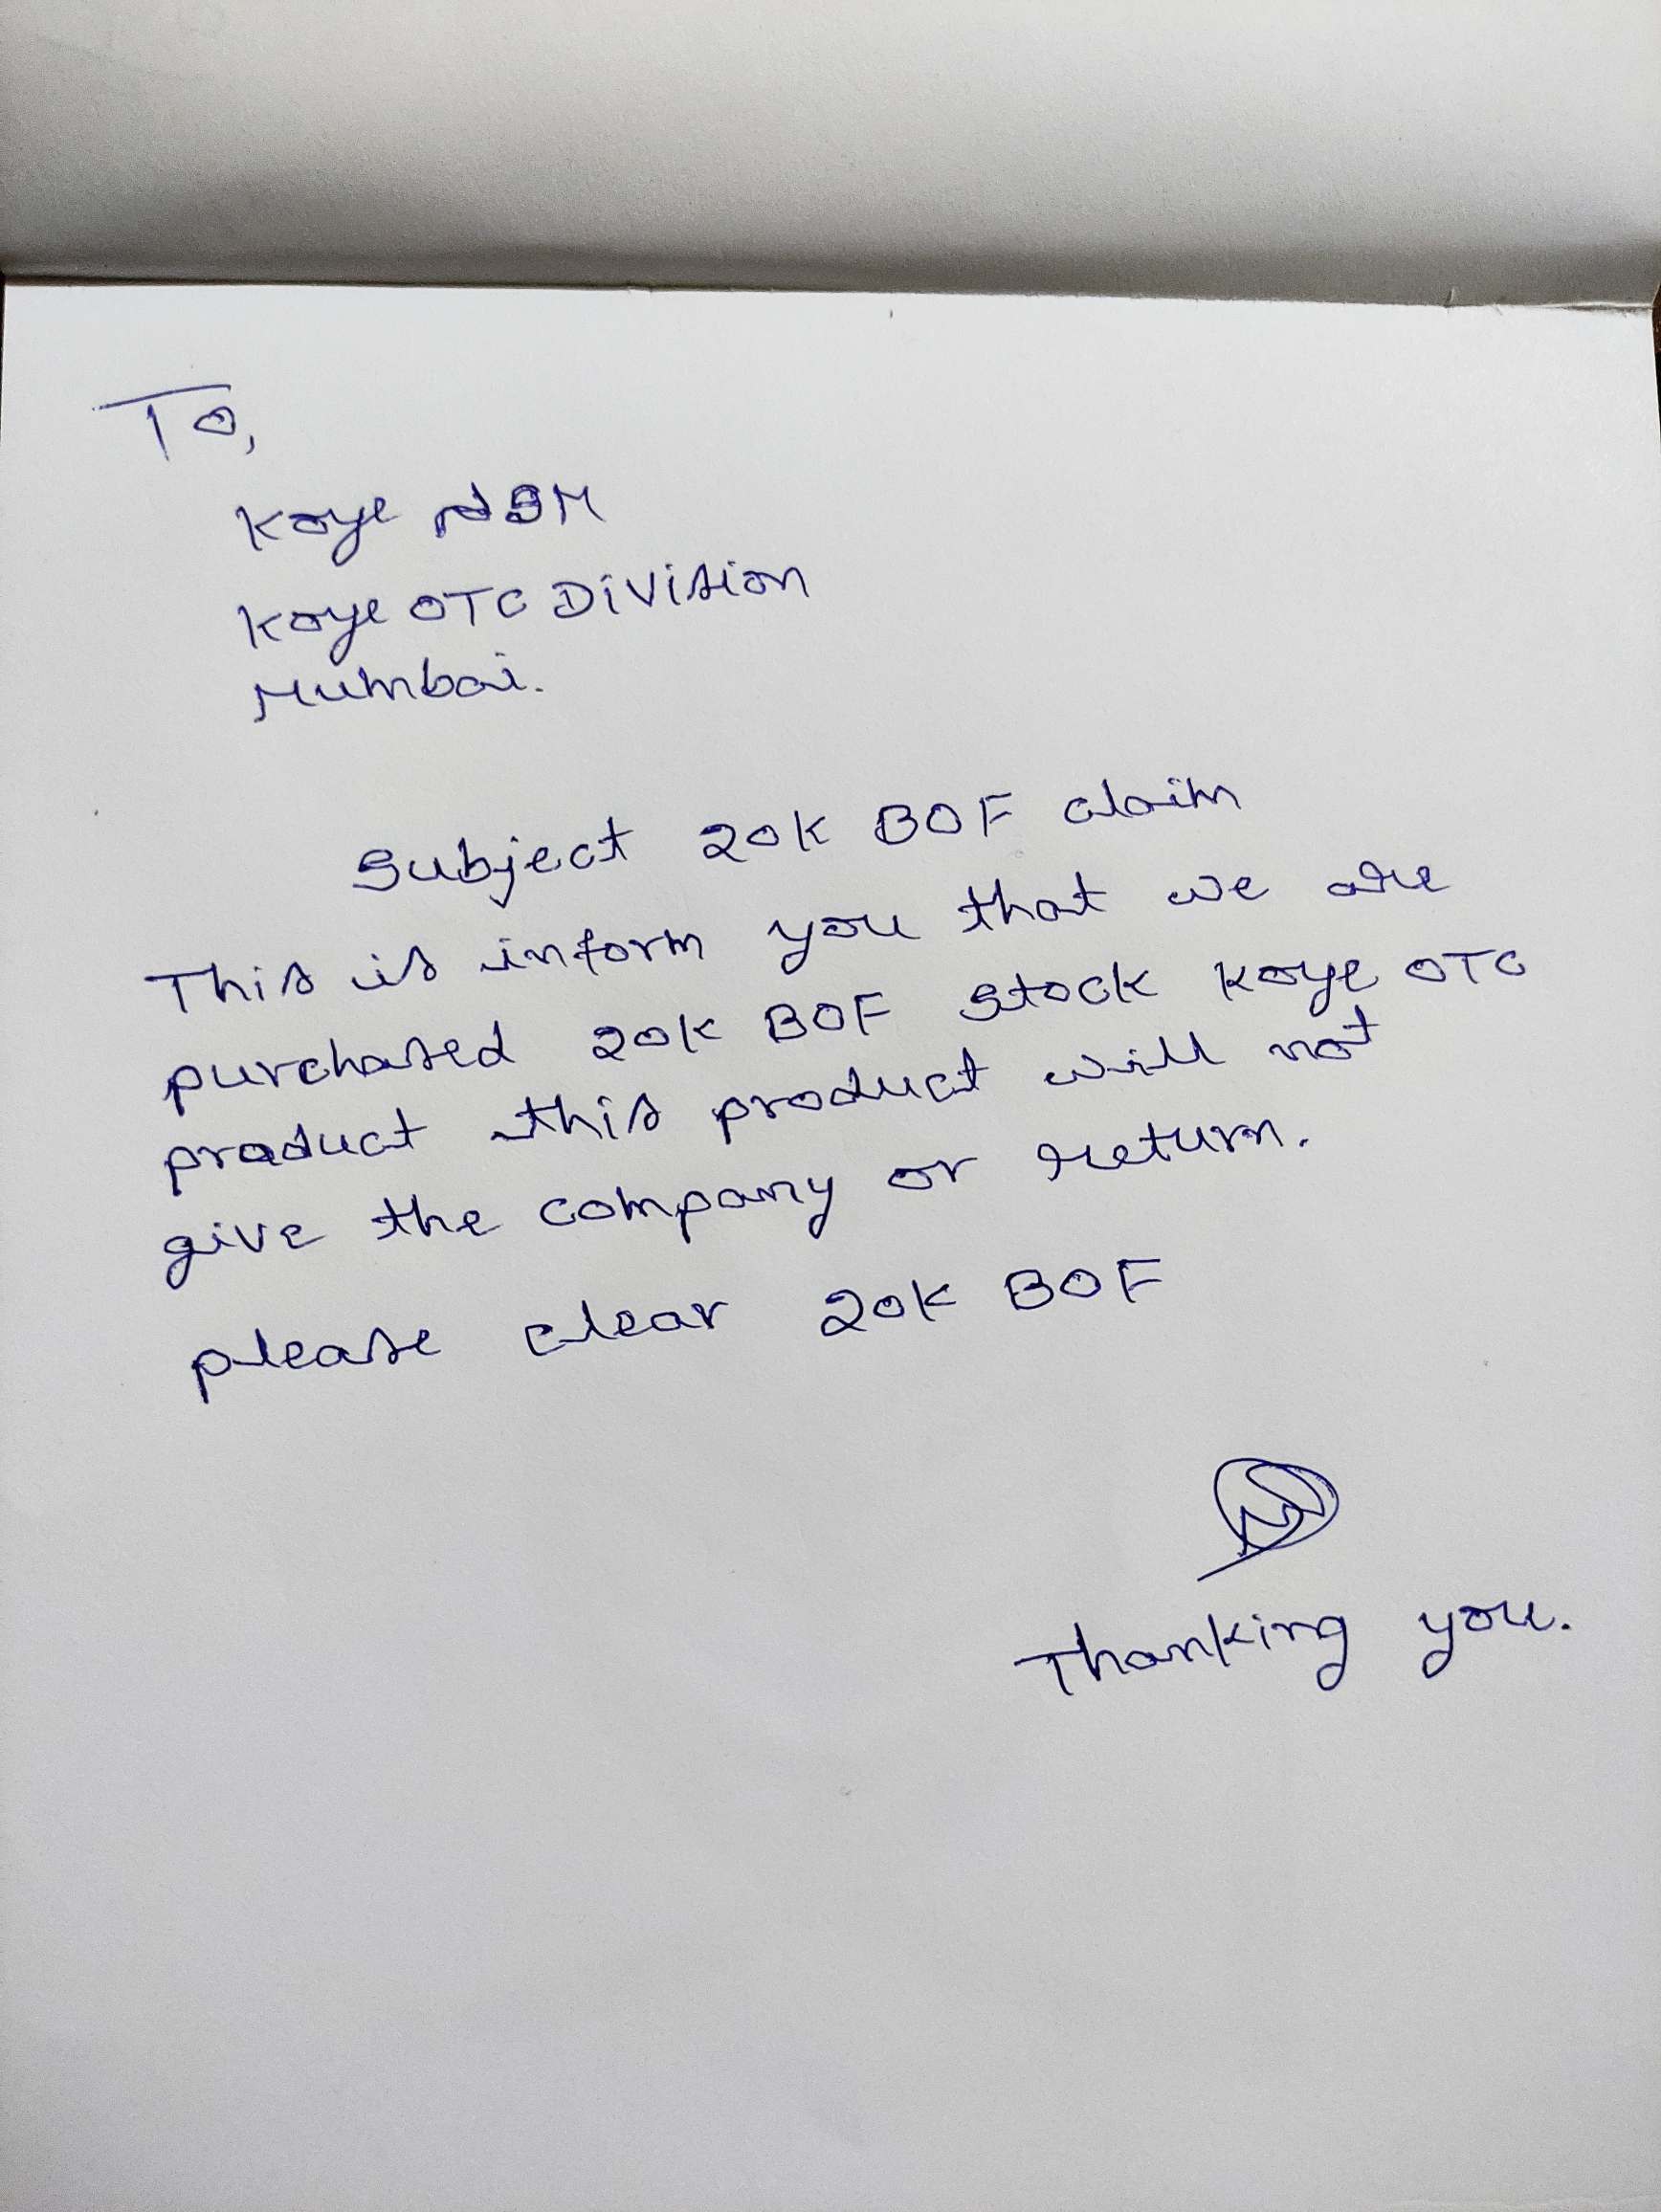 To,
Koye NSM
Koye OTC Division
Mumbai.
Subject 20K BOF claim
This is inform you that we are
purchased 20K BOF stock Koye OTC
product this product will not
give the company or return.
please clear 20K BOF
Thanking you.